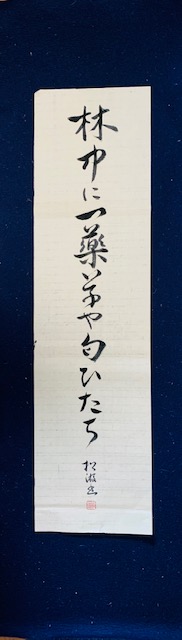 林中に一藥草や匂ひたち